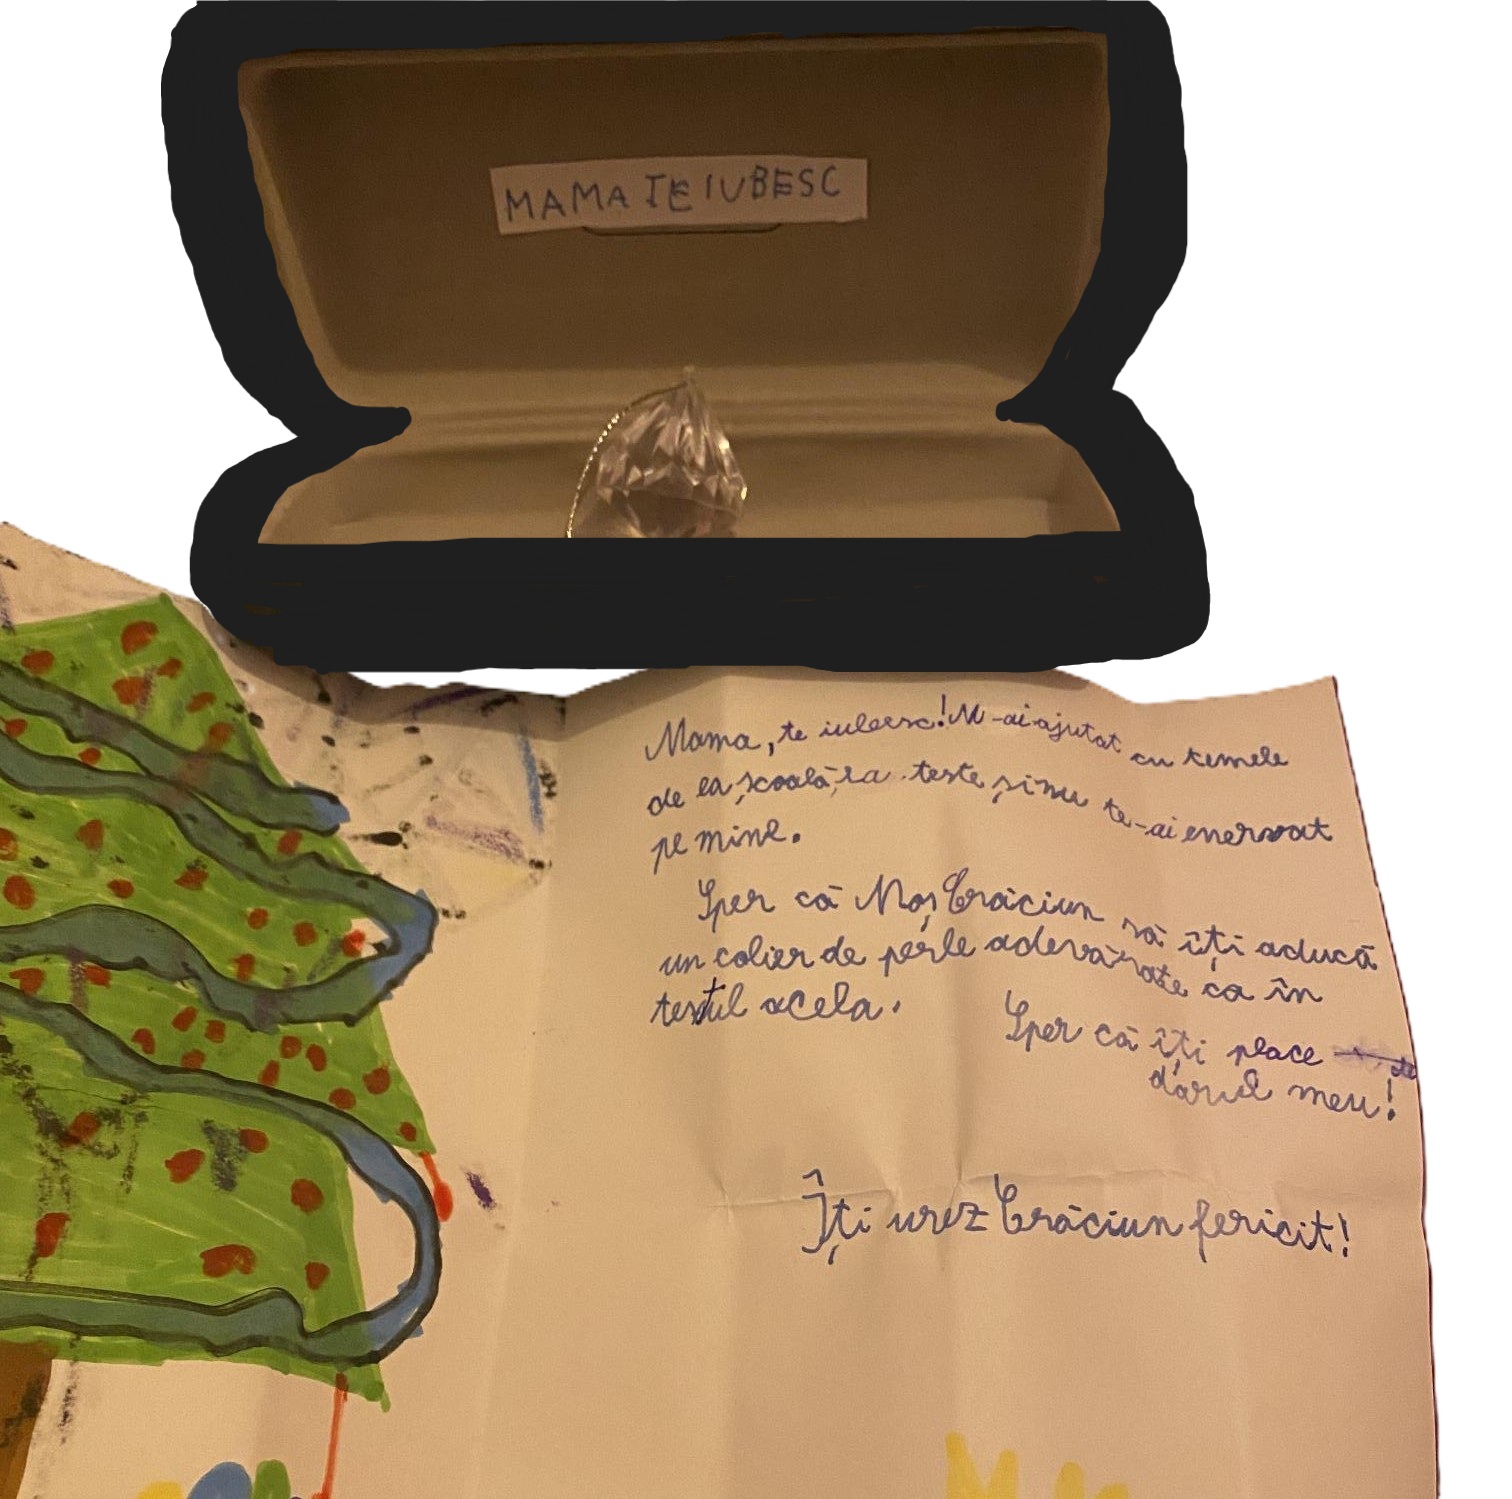 MAMA TE IUBESC
Mama, te iubesc! M-ai ajutat cu temele
de la școală, la teste și nu te-ai enervat
pe mine.
Sper că Moș Crăciun să îți aducă
un colier de perle adevărate ca în
textul acela.
Sper că îți place
darul meu!
Îți urez Crăciun fericit!